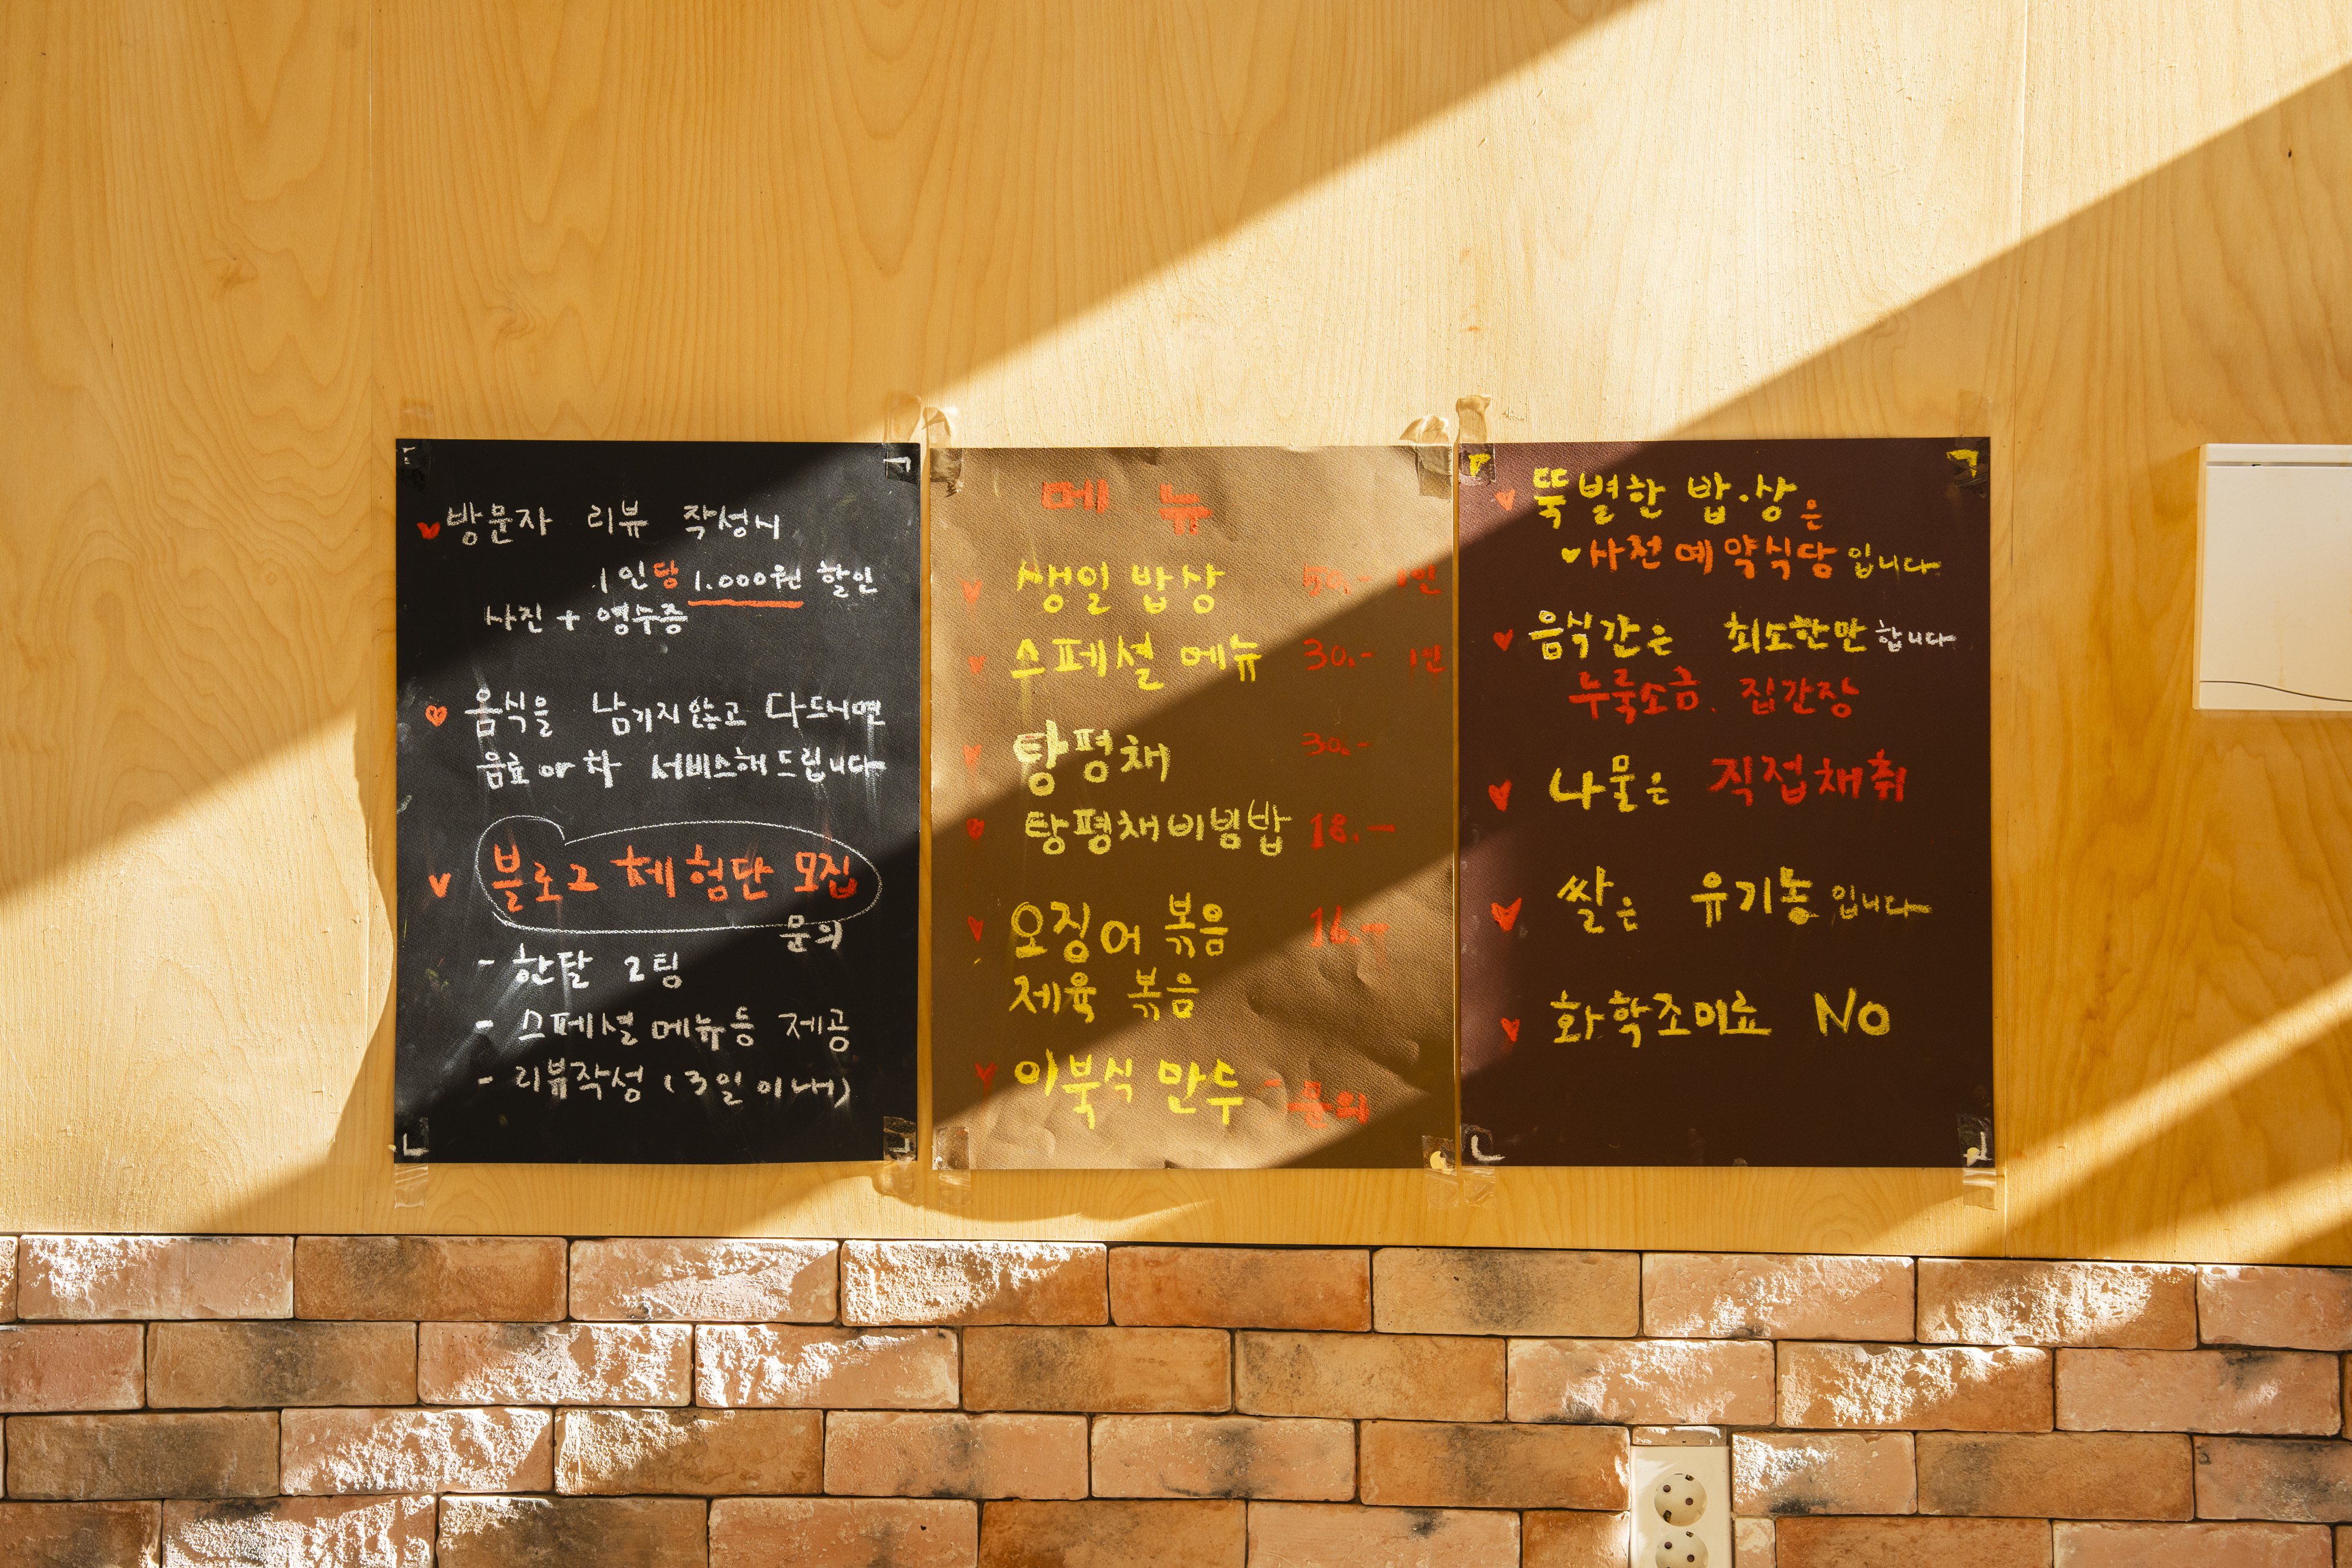 방문자 리뷰 작성시
1인당 1.000원 할인
사진 + 영수증
음식을 남기지않고 다드시면
음료 or 차 서비스해드립니다
블로그 체험단 모집
문의
- 한달 2팀
- 스페셜메뉴등 제공
- 리뷰작성 (3일이내)
메뉴
생일 밥상 50.- 1인
스페셜 메뉴 30.- 1인
탕평채 30.-
탕평채비빔밥 18.-
오징어 볶음 16.-
제육 볶음
이북식 만수 - 문의
뚝별한 밥.상은
사전예약식당입니다
음식간은 최소한만합니다
누룩소금. 집간장
나물은 직접채취
쌀은 유기농입니다
화학조미료 NO